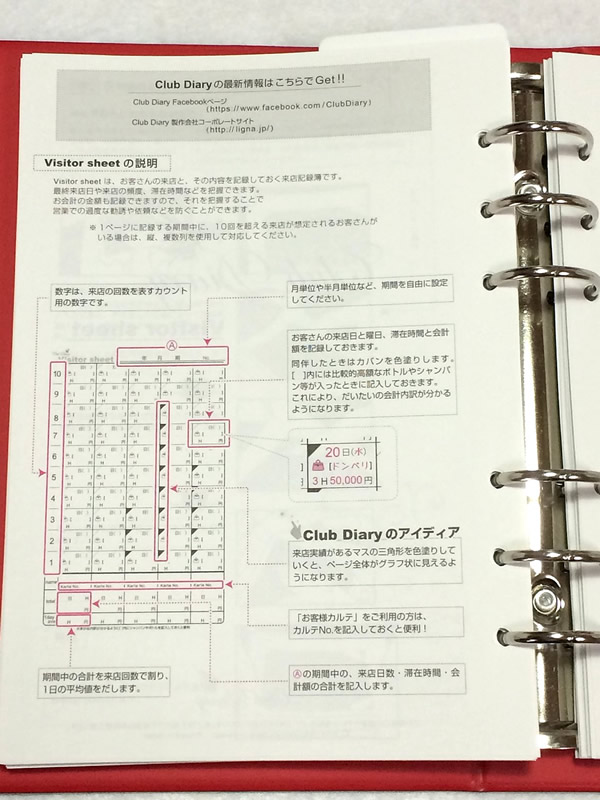 Club Diaryの最新情報はこちらでGet!!
Club Diary Facebookページ
(https://www.facebook.com/ClubDiary)
Club Diary 製作会社コーポレートサイト
(http://ligna.jp/)
Visitor sheet の説明
Visitor sheet は、お客さんの来店と、その内容を記録しておく来店記録簿です。
最終来店日や来店の頻度、滞在時間などを把握できます。
お会計の金額も記録できますので、それを把握することで
営業での過度な勧誘や依頼などを防ぐことができます。
※ 1ページに記録する期間中に、10回を超える来店が想定されるお客さんが
いる場合は、縦、複数列を使用して対応してください。
数字は、来店の回数を表すカウント
用の数字です。
月単位や半月単位など、期間を自由に設定
してください。
お客さんの来店日と曜日、滞在時間と会計
額を記録しておきます。
同伴したときはカバンを色塗りします。
[ ]内には比較的高額なボトルやシャンパ
ン等が入ったときに記入しておきます。
これにより、だいたいの会計内訳が分かる
ようになります。
Ⓐ
sitor sheet
年 月 期 No.
10
9
8
7
6
5
4
3
2
1
20日(水)
[ドンペリ]
3 H 50,000円
Club Diary のアイディア
来店実績があるマスの三角形を色塗りして
いくと、ページ全体がグラフ状に見えるよ
うになります。
name Karte No. Karte No. Karte No. Karte No. Karte No.
total
「お客様カルテ」をご利用の方は、
カルテNo.を記入しておくと便利!
期間中の合計を来店回数で割り、
1日の平均値をだします。
Ⓐの期間中の、来店日数・滞在時間・会
計額の合計を記入します。